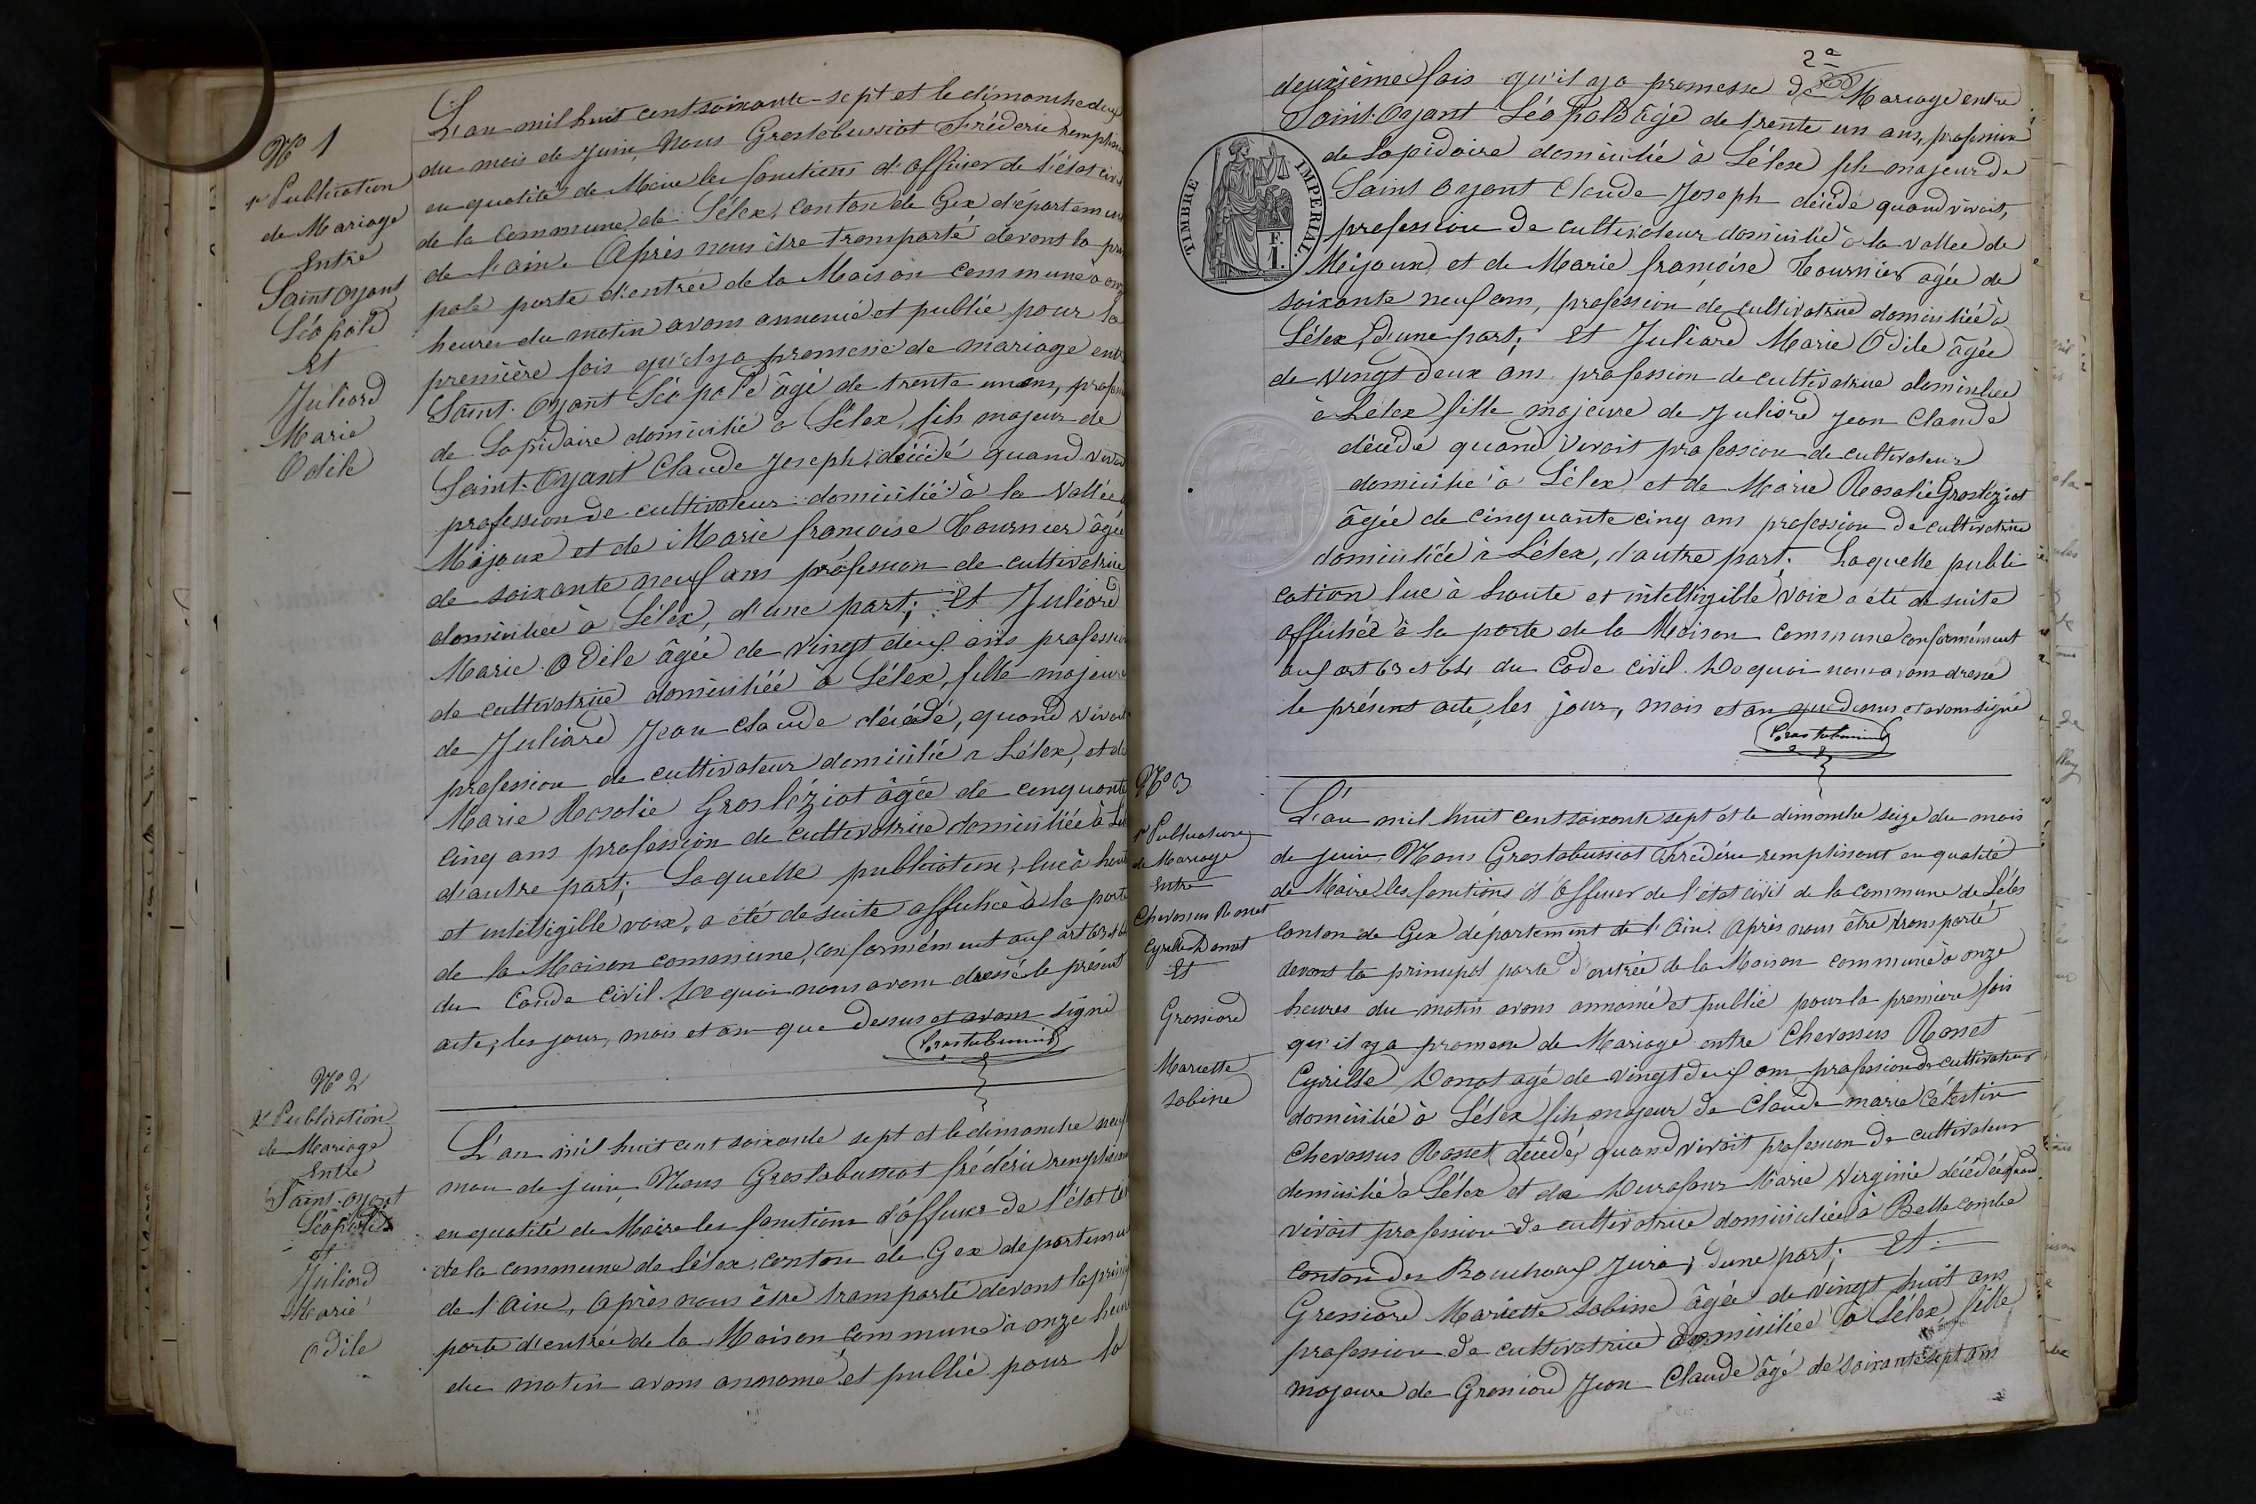 N° 1
1re Publication
de Mariage
Entre
Saint Oyant
Léopold
et
Juliard
Marie
Odile
L'an mil huit cent soixante-sept et le dimanche deux
du mois de Juin, Nous Grostabussiat Fréderic remplissant
en qualité de Maire les fonctions d'officier de l'état civil
de la Commune de Lélex, canton de Gex département
de l'ain. Après nous être transporté devant la prin
pale porte d'entrée de la Maison commune à onze
heures du matin avons annoncé et publié pour la
première fois qu'il y a promesse de mariage entre
Saint-Oyant Léopold âgé de trente un ans, profession
de Lapidaire domicilié à Lélex, fils majeur de
Saint-Oyant Claude Joseph, décédé quand vivait
profession de cultivateur domicilié à la Vallée de
Mijoux et de Marie francoise Tournier âgée
de soixante neuf ans profession de cultivatrice
domiciliée à Lélex, d'une part; Et Juliard
Marie Odile âgée de vingt deux ans profession
de cultivatrice domiciliée à Lélex, fille majeure
de Juliard Jean Claude décédé, quand vivait
profession de cultivateur domicilié à Lélex, et de
Marie Rosalie Grosléziat âgée de cinquante
cinq ans profession de cultivatrice domiciliée à Lélex
d'autre part; Laquelle publication, lue à haute
et intelligible voix, a été de suite affichée à la porte
de la Maison commune, conformément aux art 63 et 64
du Conde Civil. De quoi nous avons dressé le présent
acte, les jour, mois et an que dessus et avons signé
Grostabussiat
N° 2
2e Publication
de Mariage
Entre
Saint-oyant
Léopold
et
Juliard
Marie
Odile
L'an mil huit cent soixante sept et le dimanche neuf
mou de juin, Nous Grostabussiat fréderic remplissant
en qualité de Maire les fonctions d'officier de l'état civil
de la commune de Lélex, canton de Gex département
de l'Ain, Après nous être transporté devant la princi
porte d'entrée de la Maison commune à onze heures
du matin avons annoncé et publié pour la
2e
deuxième fois qu'il y a promesse de Mariage entre
Saint-Oyant Léopold âgé de trente un ans, profession
de Lapidaire domicilié à Lélex fils majeur de
Saint Oyant Claude Joseph décédé quand vivait,
profession de cultivateur domicilié à la vallée de
Mijoux, et de Marie francoise Tournier agée de
soixante neuf ans, profession de cultivatrice domiciliée à
Lélex, d'une part; Et Juliard Marie Odile âgée
de vingt deux ans profession de cultivatrice domiciliée
à Lélex fille majeure de Juliard Jean Claude
décédé quand vivait profession de cultivateur
domicilié à Lélex et de Marie Rosalie Grosléziat
âgée de cinquante cinq ans profession de cultivatrice
domiciliée à Lélex, d'autre part; Laquelle publi
cation lue à haute et intelligible voix a été de suite
affichée à la porte de la Maison commune conformément
aux art 63 et 64 du Code civil. De quoi nous avons dressé
le présent acte, les jour, mois et an que dessus et avons signé
Grostabussiat
TIMBRE IMPERIAL.
F.
1.
N° 3
1re Publication
de Mariage
Entre
Chevassus Rosset
Cyrille Donat
Et
Grossiord
Mariette
Sabine
L'an mil huit cent soixante sept et le dimanche seize du mois
de juin Nous Grostabussiat Fréderic remplissant en qualité
de Maire les fonctions d'officier de l'état civil de la commune de Lélex
canton de Gex département de l'Ain. Après nous être transporté
devant la principal porte d'entrée de la Maison commune à onze
heures du matin avons annoncé et publié pour la premiere fois
qu'il y a promesse de Mariage entre Chevassus Rosset
Cyrille Donat agé de vingt deux ans profession de cultivateur
domicilié à Lélex fils majeur de Claude marie Célestin
Chevassus Rosset, décédé, quand vivait profession de cultivateur
domicilié à Lélex et de Durafour Marie Virginie décédée quand
vivait profession de cultivatrice domiciliée à Bellecombe
canton des Bouchoux Jura, d'une part; Et
Grossiord Mariette Sabine âgée de vingt huit ans
profession de cultivatrice domiciliée à Lélex fille
majeure de Grossiord Jean Claude âgé de soixante sept ans